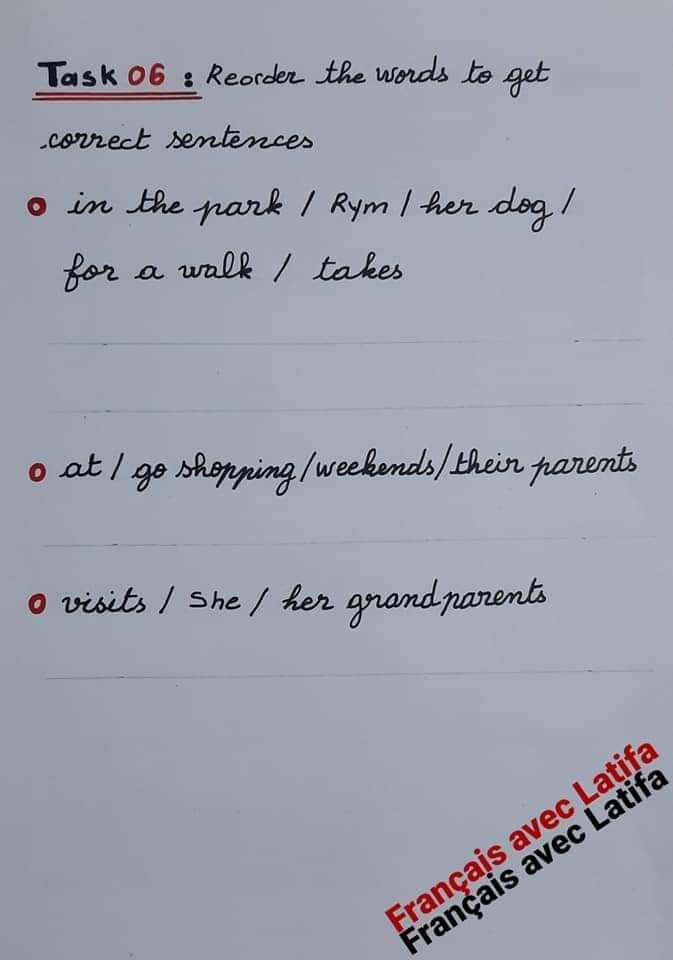 Task 06 : Reorder the words to get
correct sentences
in the park / Rym / her dog /
for a walk / takes
at / go shopping / weekends / their parents
visits / She / her grandparents
Français avec Latifa
Français avec Latifa